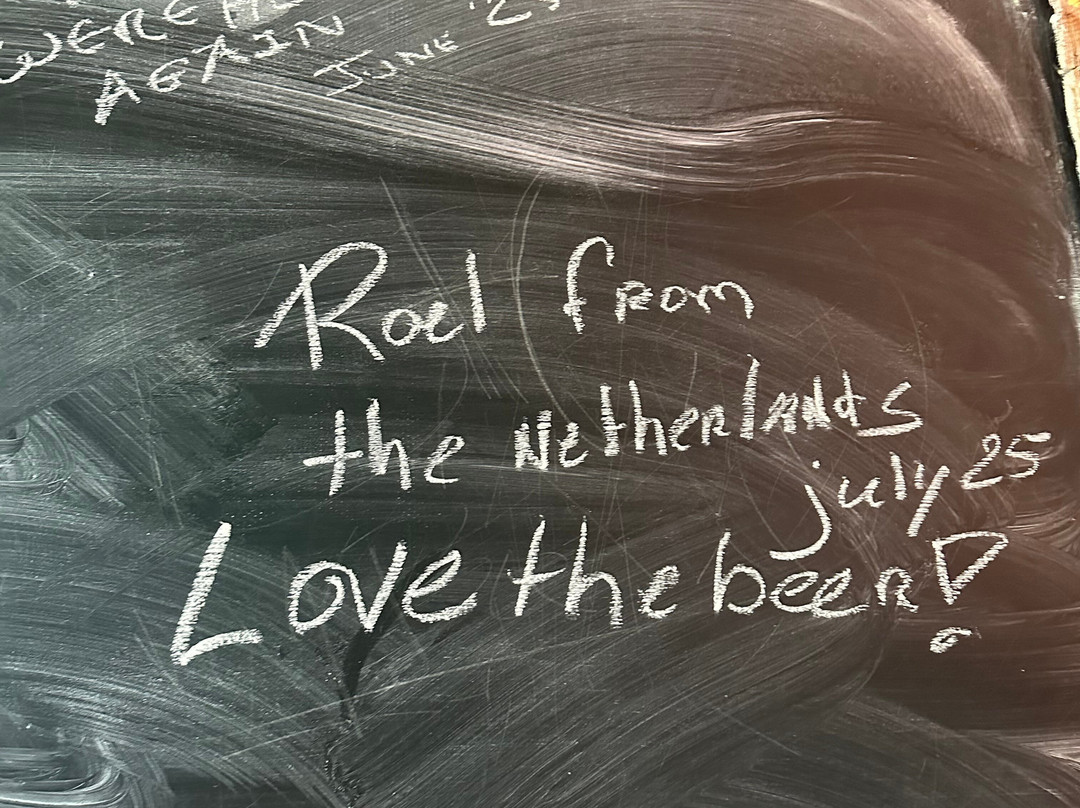 AGAIN
JUNE
Roel from
the Netherlands
july 25
Love the beer!